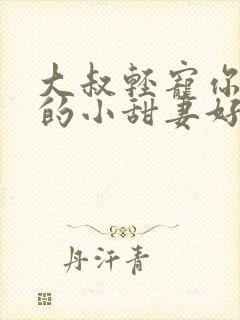 大叔轻宠你
的小甜妻好
丹汗青